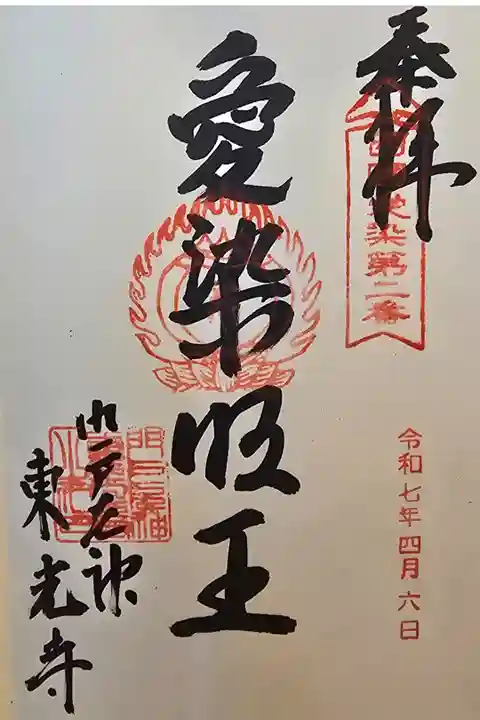 奉拝
西國愛染第二番
令和七年四月六日
愛染明王
門戸厄神
東光寺